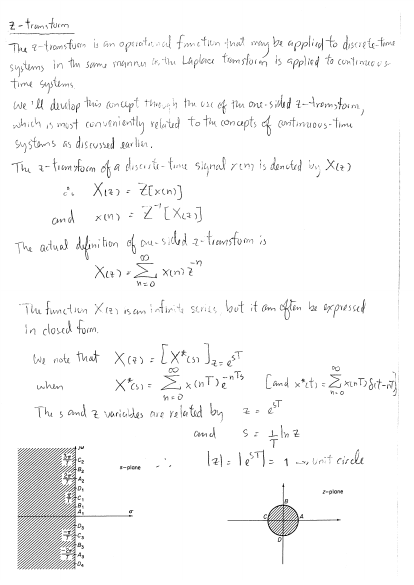 Z-transform
The z-transform is an operational function that may be applied to discrete-time
systems in the same manner as the Laplace transform is applied to continuous-
time systems.
We'll develop this concept through the use of the one-sided z-transform,
which is most conveniently related to the concepts of continuous-time
systems as discussed earlier.
The z-transform of a discrete-time signal x(n) is denoted by X(z)
∴ X(z) = Z[x(n)]
and x(n) = Z⁻¹[X(z)]
The actual definition of one-sided z-transform is
X(z) = ∑_{n=0}^{∞} x(n) z^{-n}
The function X(z) is an infinite series but it can often be expressed
in closed form.
We note that X(z) = [X*(s)]_{z=e^{sT}}
when X*(s) = ∑_{n=0}^{∞} x(nT) e^{-nTs} [and x*(t) = ∑_{n=0}^{∞} x(nT) δ(t-nT)]
The s and z variables are related by z = e^{sT}
and s = 1/T ln z
∴ |z| = |e^{sT}| = 1 → unit circle
s-plane
jω
C₂
B₂
A₂
D₁
C₁
B₁
A₁
σ
D₃
C₃
B₃
A₃
D₄
z-plane
B
C
A
D